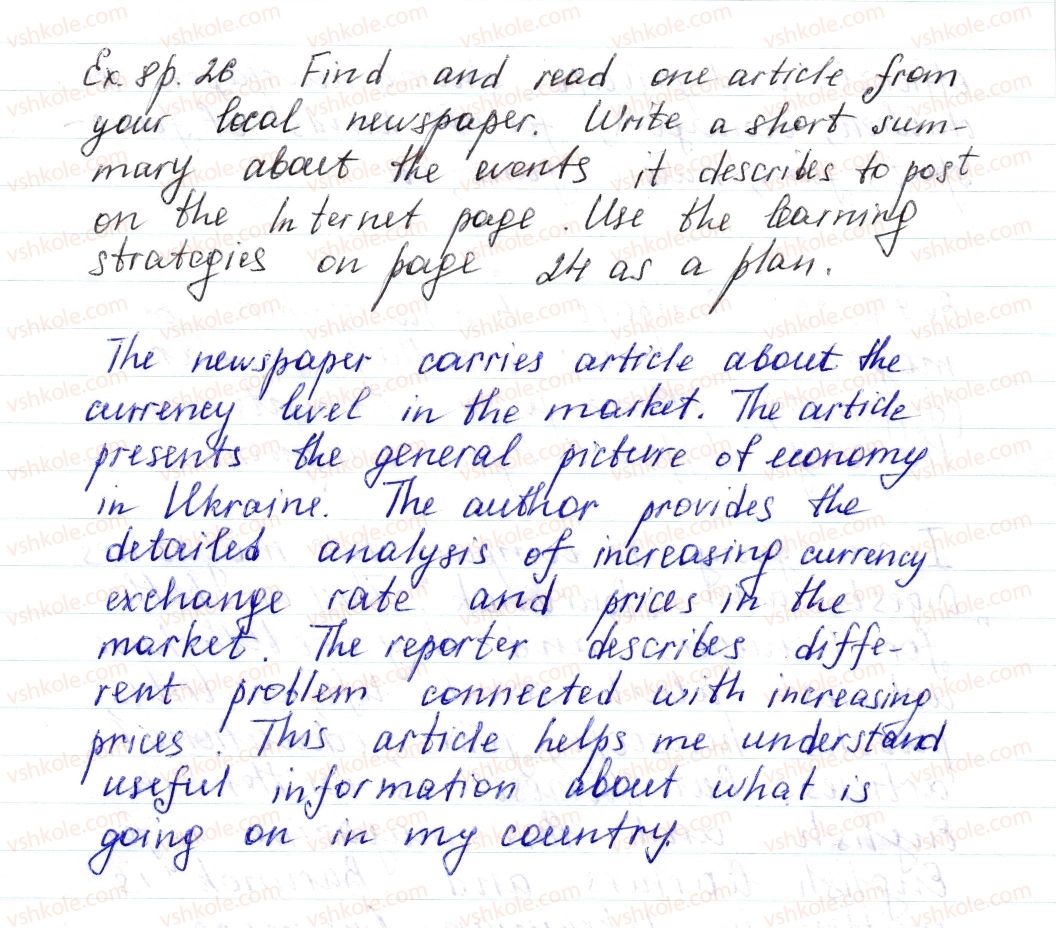 Ex. 8 p. 26 Find and read one article from
your local newspaper. Write a short sum-
mary about the events it describes to post
on the Internet page. Use the learning
strategies on page 24 as a plan.
The newspaper carries article about the
currency level in the market. The article
presents the general picture of economy
in Ukraine. The author provides the
detailed analysis of increasing currency
exchange rate and prices in the
market. The reporter describes diffe-
rent problem connected with increasing
prices. This article helps me understand
useful information about what is
going on in my country.
vshkole.com